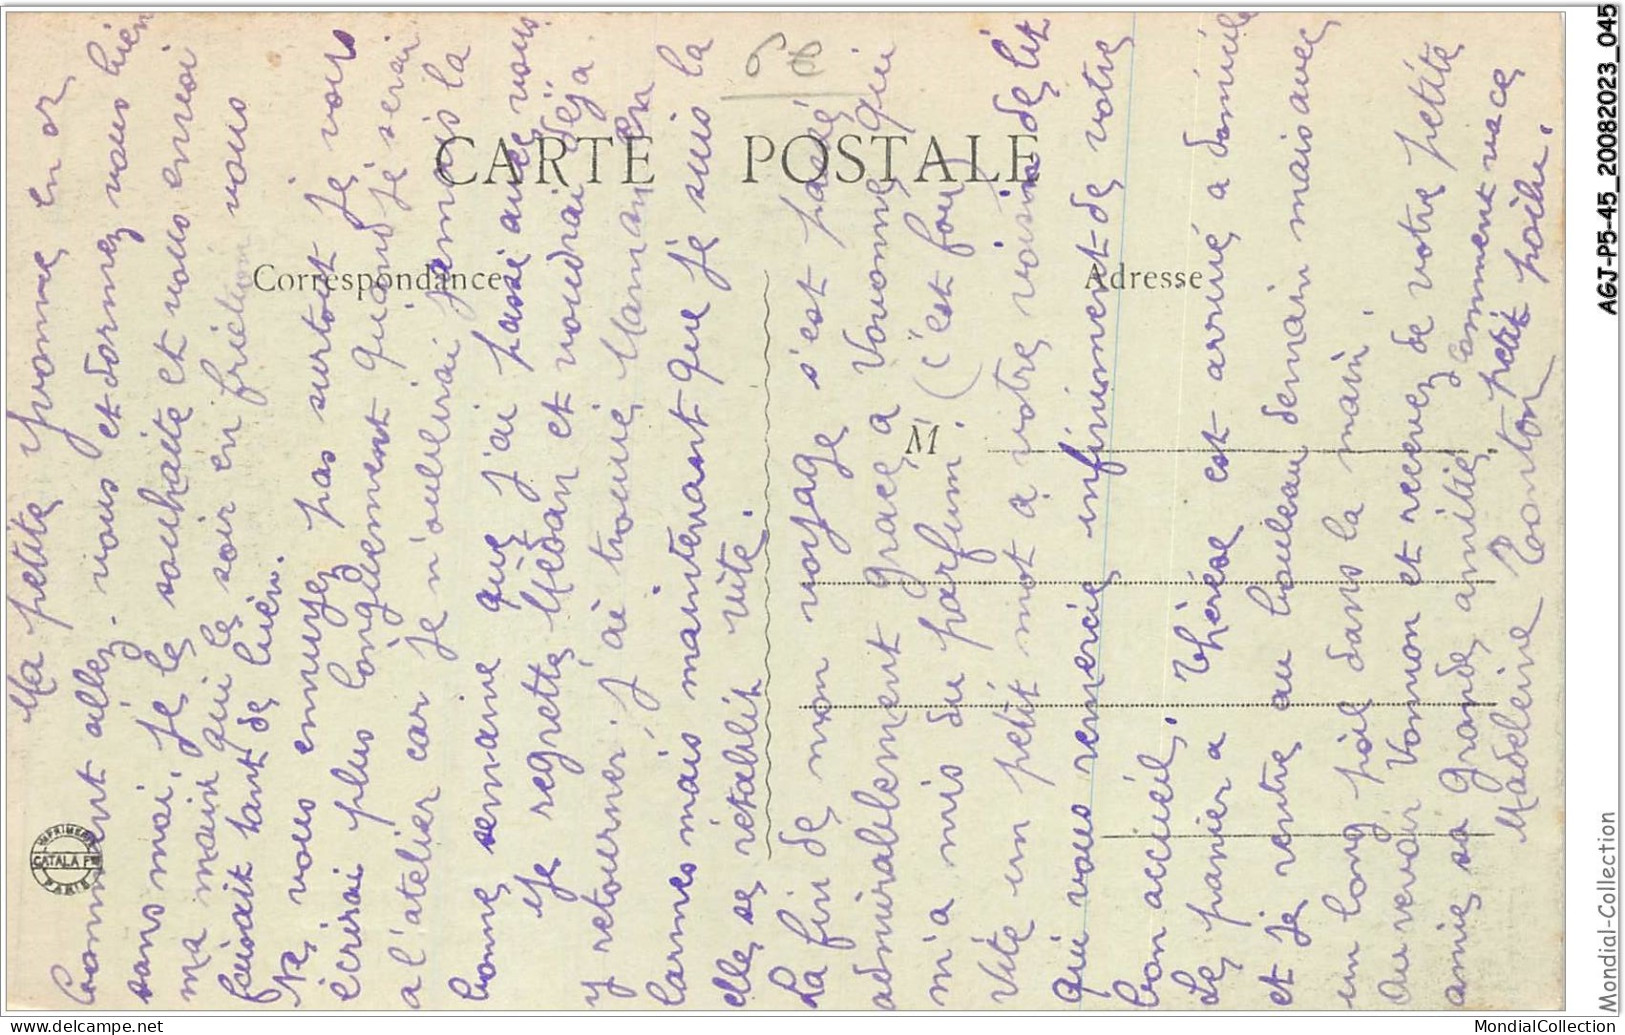 Ma petite Yvonne en or
Comment allez-vous et dormez vous bien
sans moi, je le souhaite et vous envoi
ma main qui le soir en friction vous
faisait tant de bien.
Ne vous ennuyez pas surtout je vous
écrirai plus longuement quand je serai
a l'atelier car je n'oublirai jamais la
bonne semaine que j'ai passé avec vous.
Je regrette Médan et voudrai déja
y retourner, j'ai trouvé Maman en
larmes mais maintenant que je suis la
elle se rétablit vite.
La fin de mon voyage s'est passé
admirablement grace a Vonvonne qui
m'a mis du parfum. (c'est fou
Vite un petit mot a votre voisin de lit
qui vous remercie infiniment de votre
bon accueil. Thérèse est arrivé a domicile
Le panier a
et je rentre au bouleau demain mais avec
un long poil dans la main.
Au revoir Vonvon et recevez de votre petite
amie sa grande amitié
Comment va ce
petit poilu.
Madeleine Tonton
CARTE POSTALE
Correspondance
Adresse
M
IMPRIMERIE
CATALA Frs
PARIS
AGJ-P5-45_20082023_045
Mondial-Collection
www.delcampe.net
MondialCollection